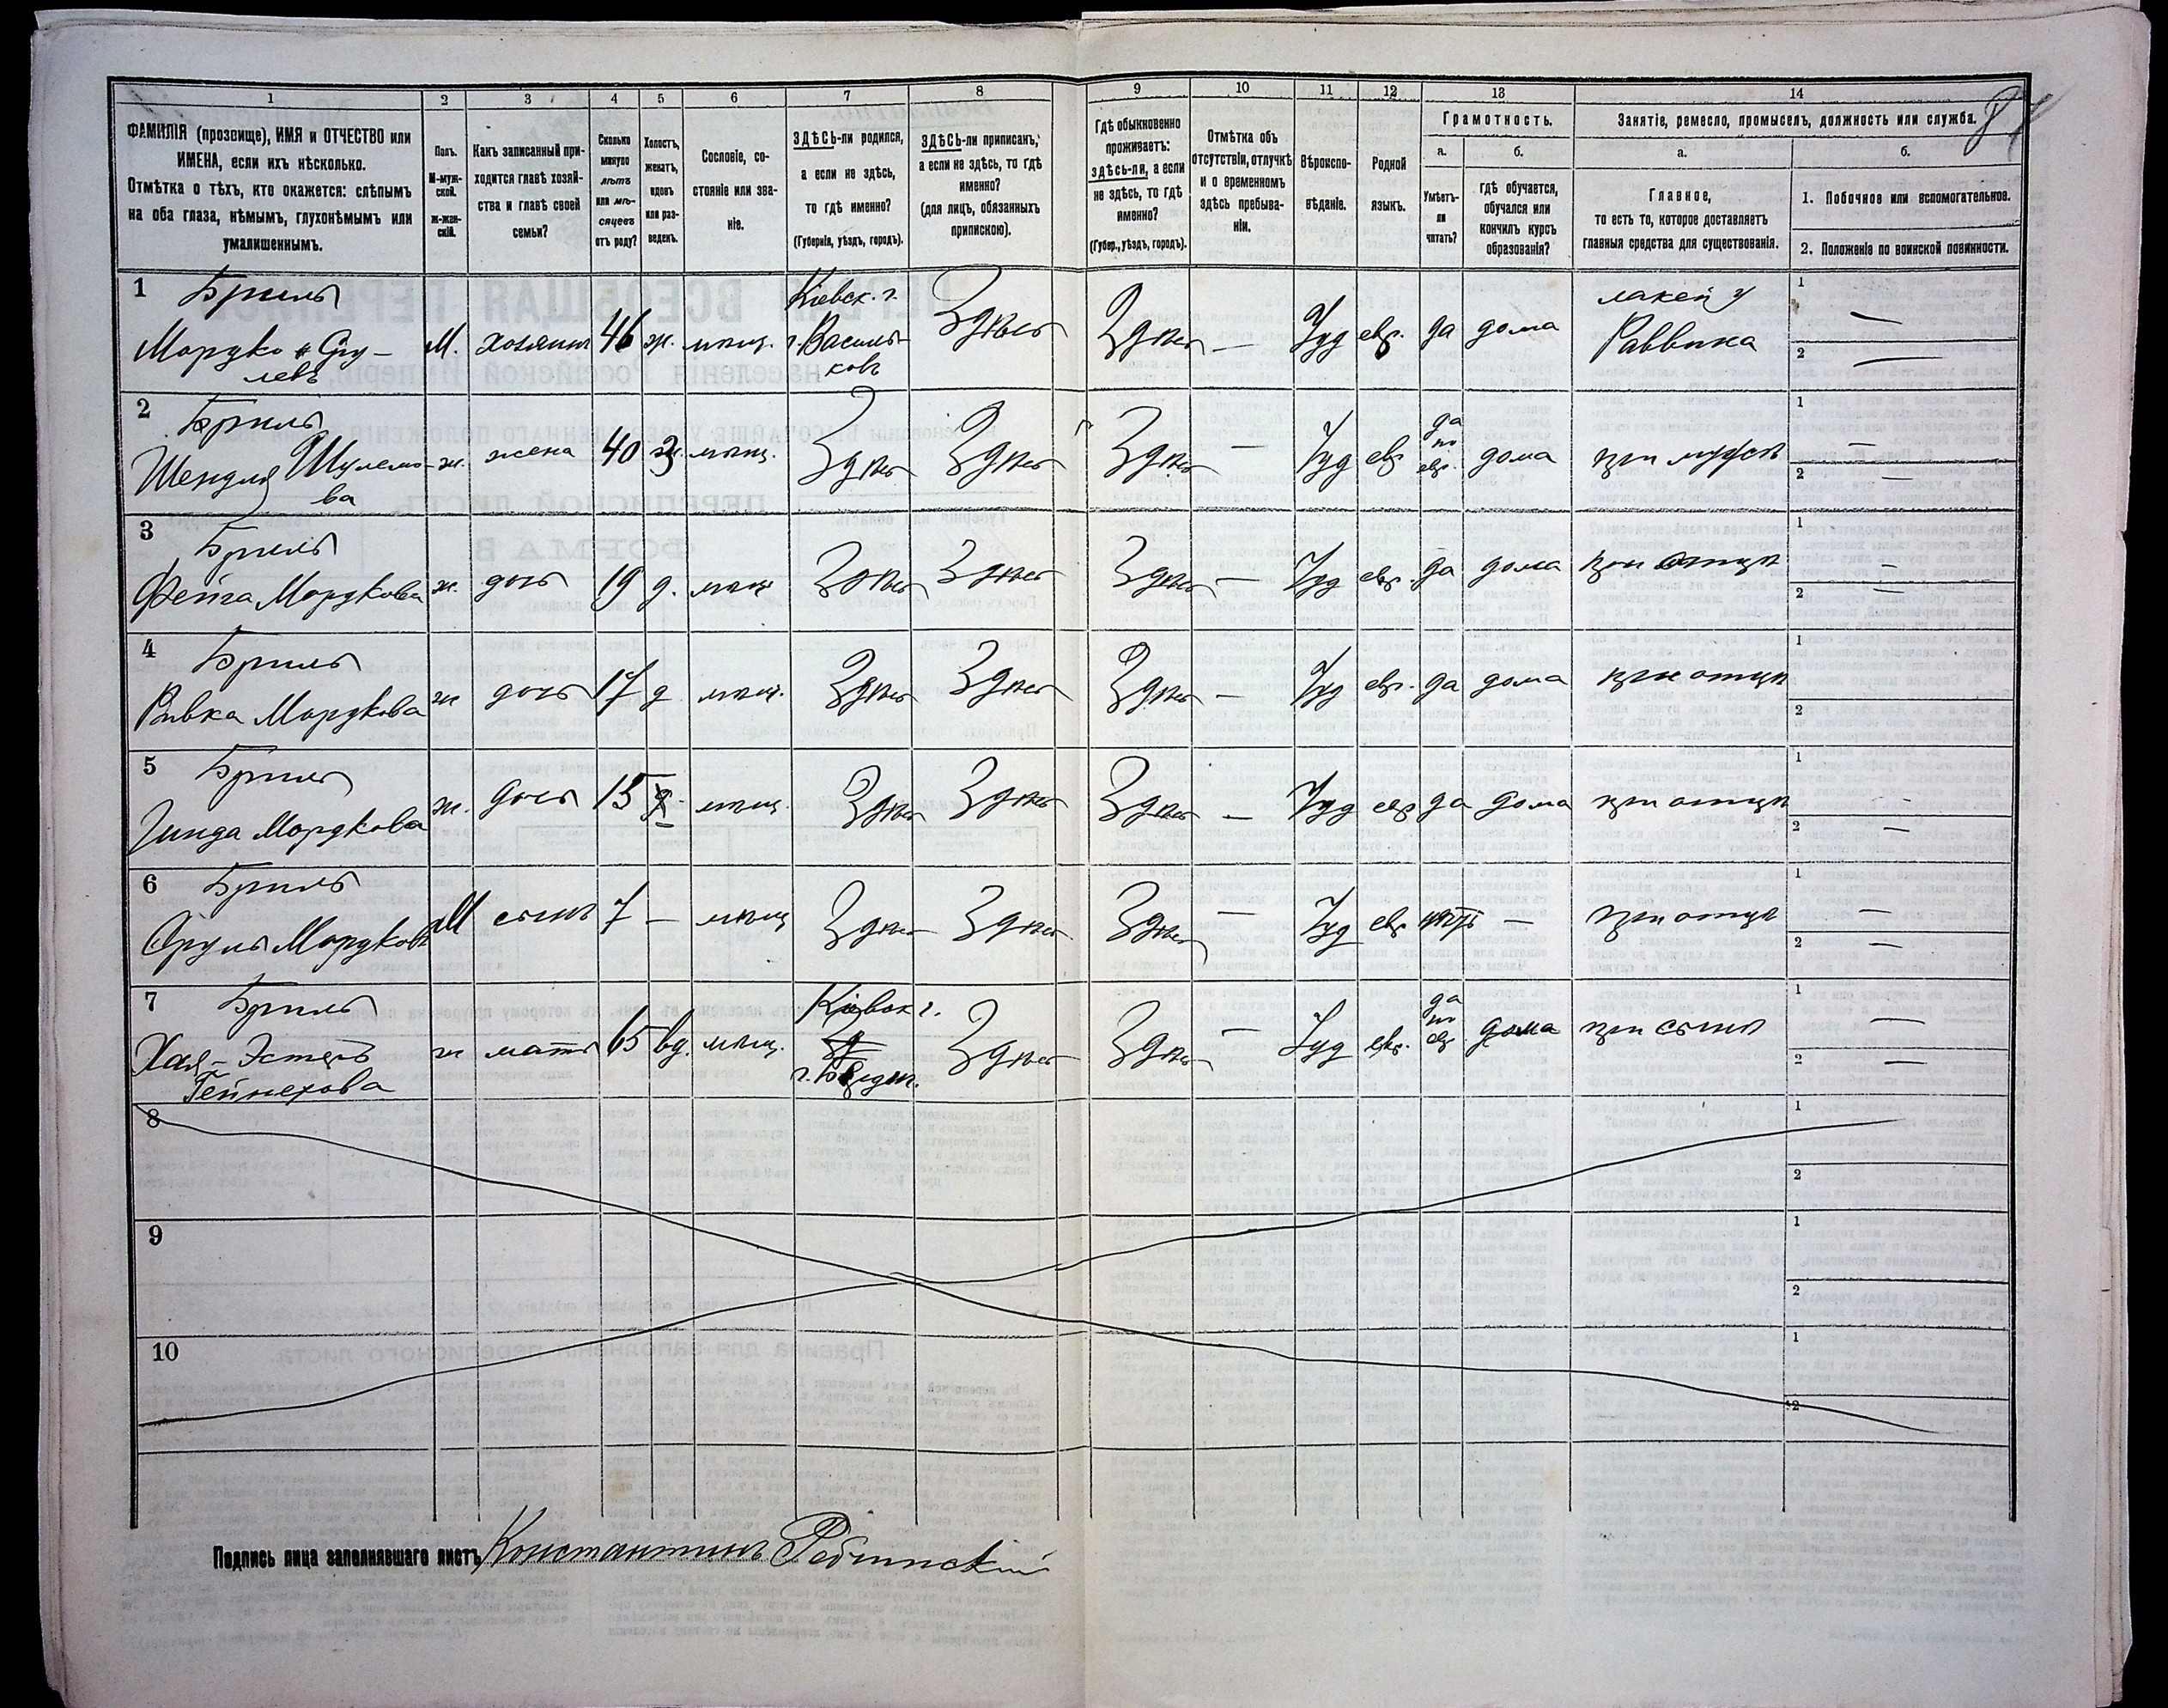 1 2 3 4 5 6 7 8 9 10 11 12 13 14
ФАМИЛІЯ (прозвище), ИМЯ и ОТЧЕСТВО или
ИМЕНА, если ихъ нѣсколько.
Отмѣтка о тѣхъ, кто окажется: слѣпымъ
на оба глаза, нѣмымъ, глухонѣмымъ или
умалишеннымъ.
Полъ.
М-муж-
ской.
Ж-жен-
скій.
Какъ записанный при-
ходится главѣ хозяй-
ства и главѣ своей
семьи?
Сколько
минуло
лѣтъ
или мѣ-
сяцевъ
отъ роду?
Холостъ,
женатъ,
вдовъ
или раз-
веденъ.
Сословіе, со-
стояніе или зва-
ніе.
ЗДѢСЬ-ли родился,
а если не здѣсь,
то гдѣ именно?
(Губернія, уѣздъ, городъ).
ЗДѢСЬ-ли приписанъ,
а если не здѣсь, то гдѣ
именно?
(для лицъ, обязанныхъ
припискою).
Гдѣ обыкновенно
проживаетъ:
здѣсь-ли, а если
не здѣсь, то гдѣ
именно?
(Губер., уѣздъ, городъ).
Отмѣтка объ
отсутствіи, отлучкѣ
и о временномъ
здѣсь пребыва-
ніи.
Вѣроиспо-
вѣданіе.
Родной
языкъ.
Грамотность.
а. б.
Умѣетъ-
ли
читать?
гдѣ обучается,
обучался или
кончилъ курсъ
образованія?
Занятіе, ремесло, промыселъ, должность или служба.
а. б.
Главное,
то есть то, которое доставляетъ
главныя средства для существованія.
1. Побочное или вспомогательное.
2. Положеніе по воинской повинности.
1 Бриль
Мордко Сру-
левъ
М. хозяинъ 46 ж. мѣщ.
Кіевск. г.
г. Василь-
ковъ
Здѣсь Здѣсь — Іуд евр. да дома
лакей у
Раввина
1 —
2 —
2 Бриль
Шендля Шулемо-
ва
ж. жена 40 з. мѣщ. Здѣсь Здѣсь Здѣсь — Іуд евр
да
по
евр.
дома при мужѣ
1 —
2 —
3 Бриль
Фейга Мордкова ж. дочь 19 д. мѣщ Здѣсь Здѣсь Здѣсь — Іуд евр. да дома при отцѣ
1 —
2 —
4 Бриль
Ривка Мордкова ж дочь 17 д мѣщ. Здѣсь Здѣсь Здѣсь — Іуд евр. да дома при отцѣ
1
2
5 Бриль
Гинда Мордкова ж. дочь 15 мѣщ. Здѣсь Здѣсь Здѣсь — Іуд евр да дома при отцѣ
1 —
2 —
6 Бриль
Сруль Мордковъ М сынъ 7 — мѣщ Здѣсь Здѣсь Здѣсь — Іуд евр нѣтъ — при отцѣ
1 —
2 —
7 Бриль
Хая-Эстеръ
Гейнехова
ж мать 65 вд. мѣщ.
Кіевск г.
Здѣсь Здѣсь — Іуд евр.
да
по
евр.
дома при сынѣ
1 —
2 —
8
1
2
9
1
2
10
1
2
Подпись лица заполнявшаго листъ Константинъ